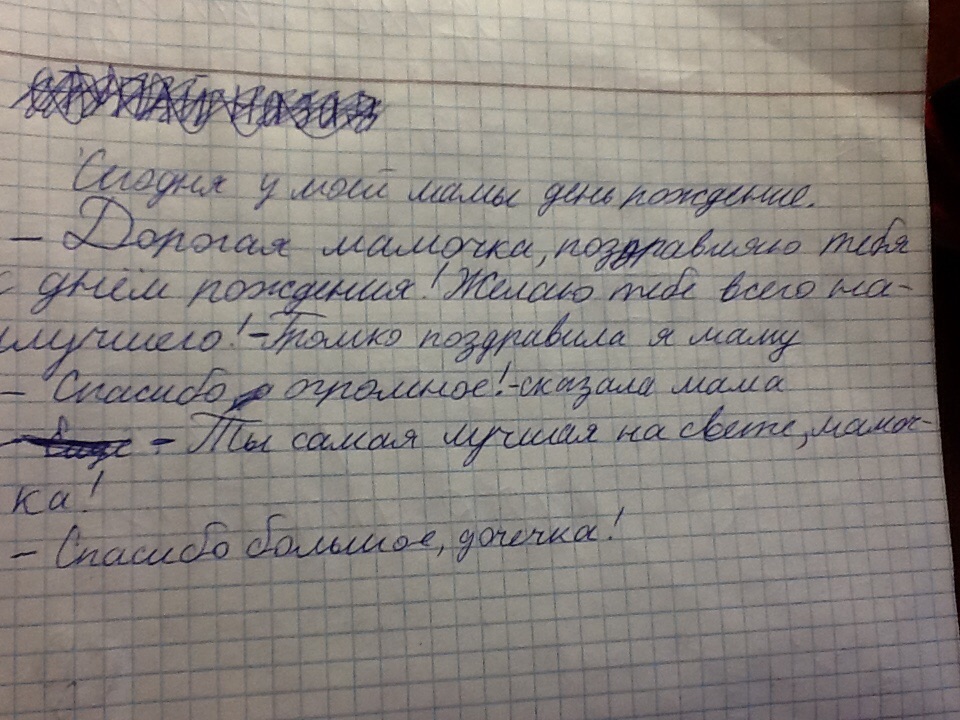 Сегодня у моей мамы день рождение.
– Дорогая мамочка, поздравляю тебя
с днём рождения! Желаю тебе всего на-
илучшего! - Громко поздравила я маму
– Спасибо огромное! - сказала мама
– Ты самая лучшая на свете, мамоч-
ка!
– Спасибо большое, дочечка!